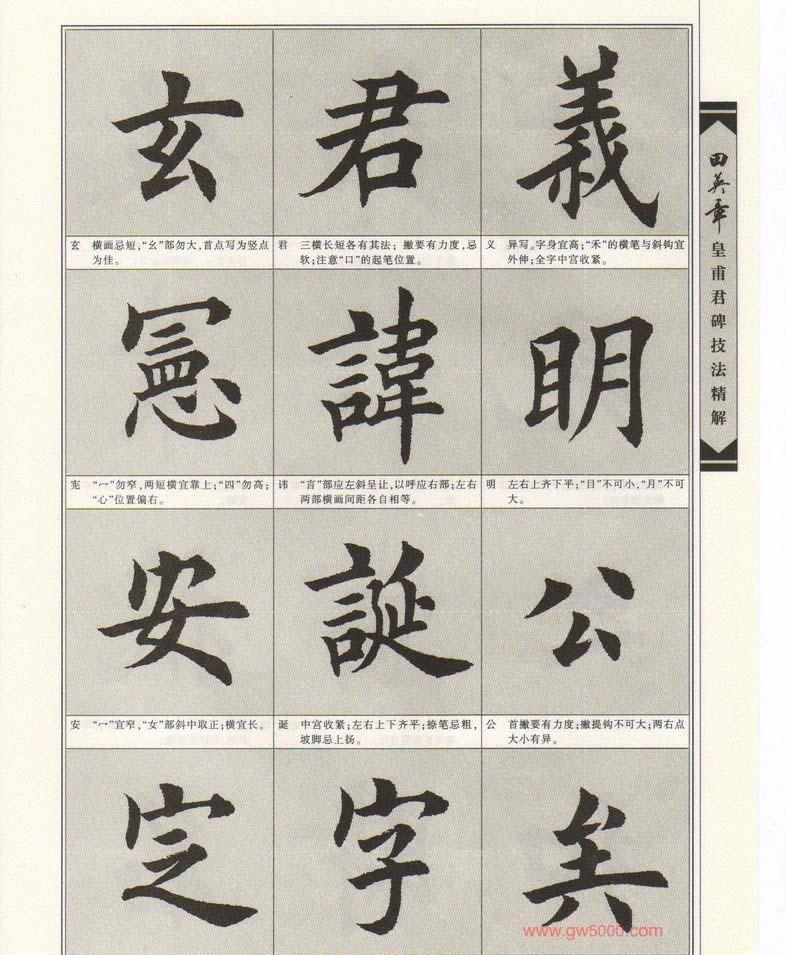 義
义 异写。字身宜高;“禾”的横笔与斜钩宜
外伸;全字中宫收紧。
明
明 左右上齐下平;“目”不可小,“月”不可
大。
公
公 首撇要有力度;撇提钩不可大;两右点
大小有异。
矣
君
君 三横长短各有其法;撇要有力度,忌
软;注意“口”的起笔位置。
諱
讳 “言”部应左斜呈让,以呼应右部;左右
两部横画间距各自相等。
誕
诞 中宫收紧;左右上下齐平;捺笔忌粗,
坡脚忌上扬。
字
玄
玄 横画忌短,“幺”部勿大,首点写为竖点
为佳。
憲
宪 “冖”勿窄,两短横宜靠上;“四”勿高;
“心”位置偏右。
安
安 “宀”宜窄,“女”部斜中取正;横宜长。
定
田英章皇甫君碑技法精解
www.gw5000.com